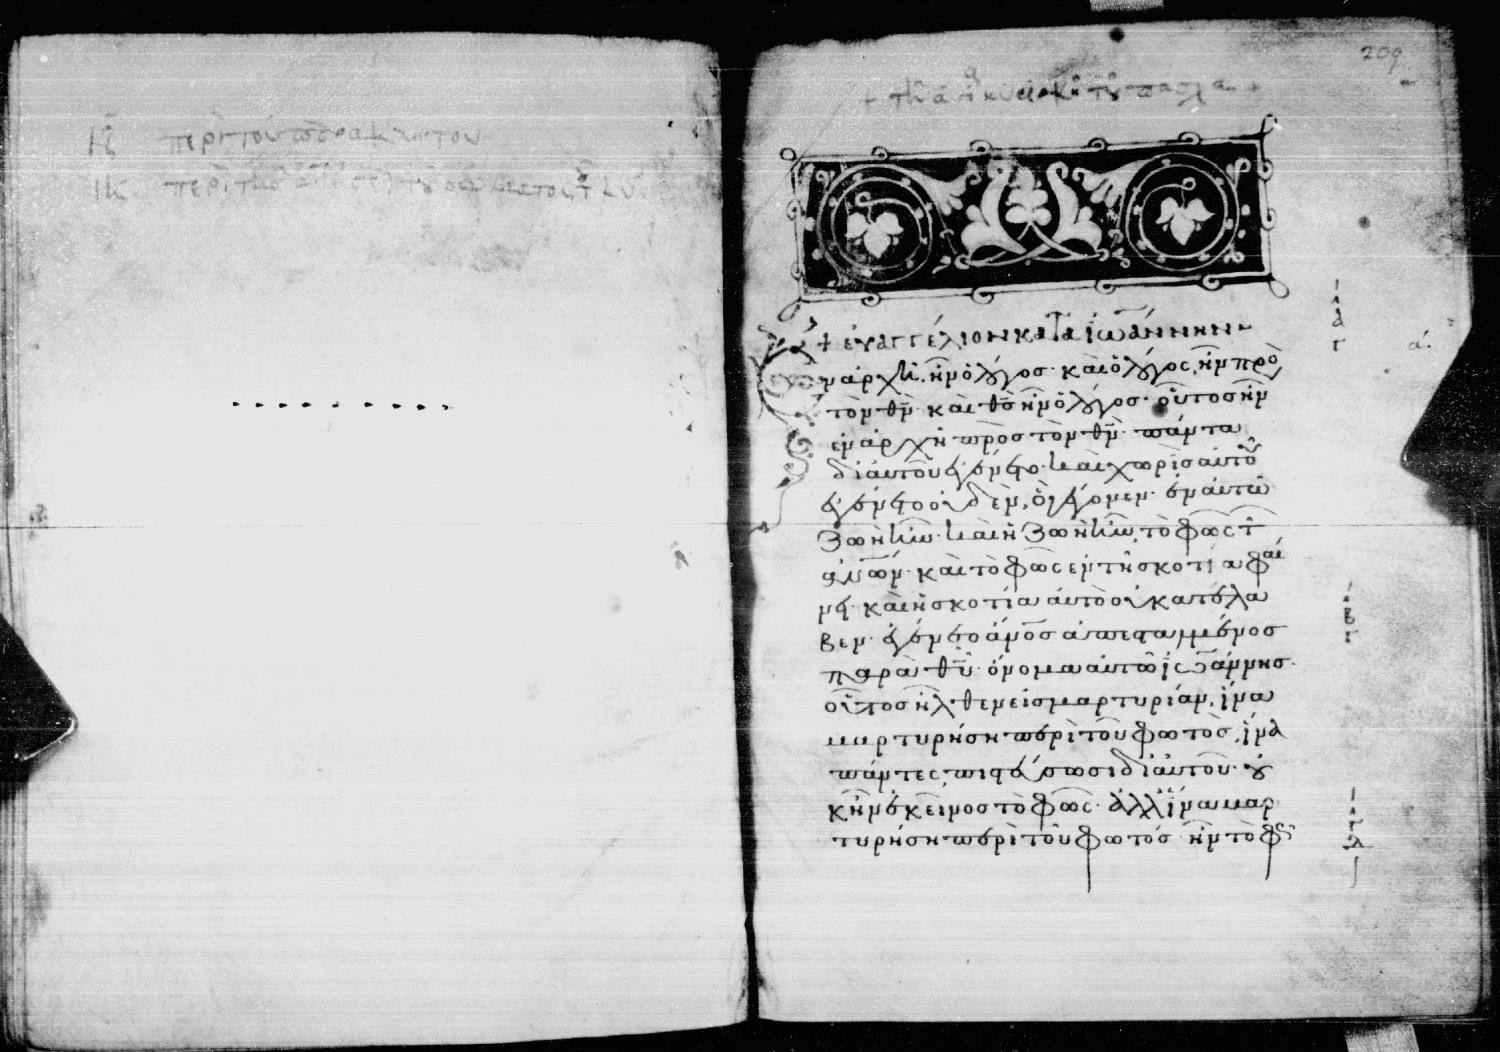 ιζ περι του παραψηφιστου
ιη περι της αιτησεως του σωματος του κυ
209
+ τη α κυριακη του πασχα +
+ ευαγγέλιον κατα ϊωάννην
ν αρχῆ, ἦν ὁ λόγος· καὶ ὁ λόγος, ἦν πρὸ
τὸν θν· καὶ θς ἦν ὁ λόγος· οὗτος ἦν
ἐν ἀρχῆ πρὸς τὸν θν· πάντα
δι αὐτοῦ ἐγένετο· καὶ χωρὶς αὐτοῦ
ἐγένετο οὐδὲν, ὃ γέγονεν· ἐν αὐτῶ
ζωὴ ἦν· καὶ ἡ ζωὴ ἦν τὸ φῶς τ
ανων· καὶ τὸ φῶς ἐν τῆ σκοτία φαί
νει· καὶ ἡ σκοτία αὐτὸ οὐ κατέλα
βεν· ἐγένετο ἀνος ἀπεσταλμένος
παρὰ θυ· ὄνομα αὐτῶ ϊωάννης·
οὗτος ἦλθεν εἰς μαρτυρίαν, ἵνα
μαρτυρήση περὶ τοῦ φωτὸς, ἵνα
πάντες πιστεύσωσι δι αὐτοῦ· οὐ
κ ἦν ἐκεῖνος τὸ φῶς· ἀλλ ἵνα μαρ
τυρήση περὶ τοῦ φωτός· ἦν τὸ φῶς
α
γ
α
β
γ
γ